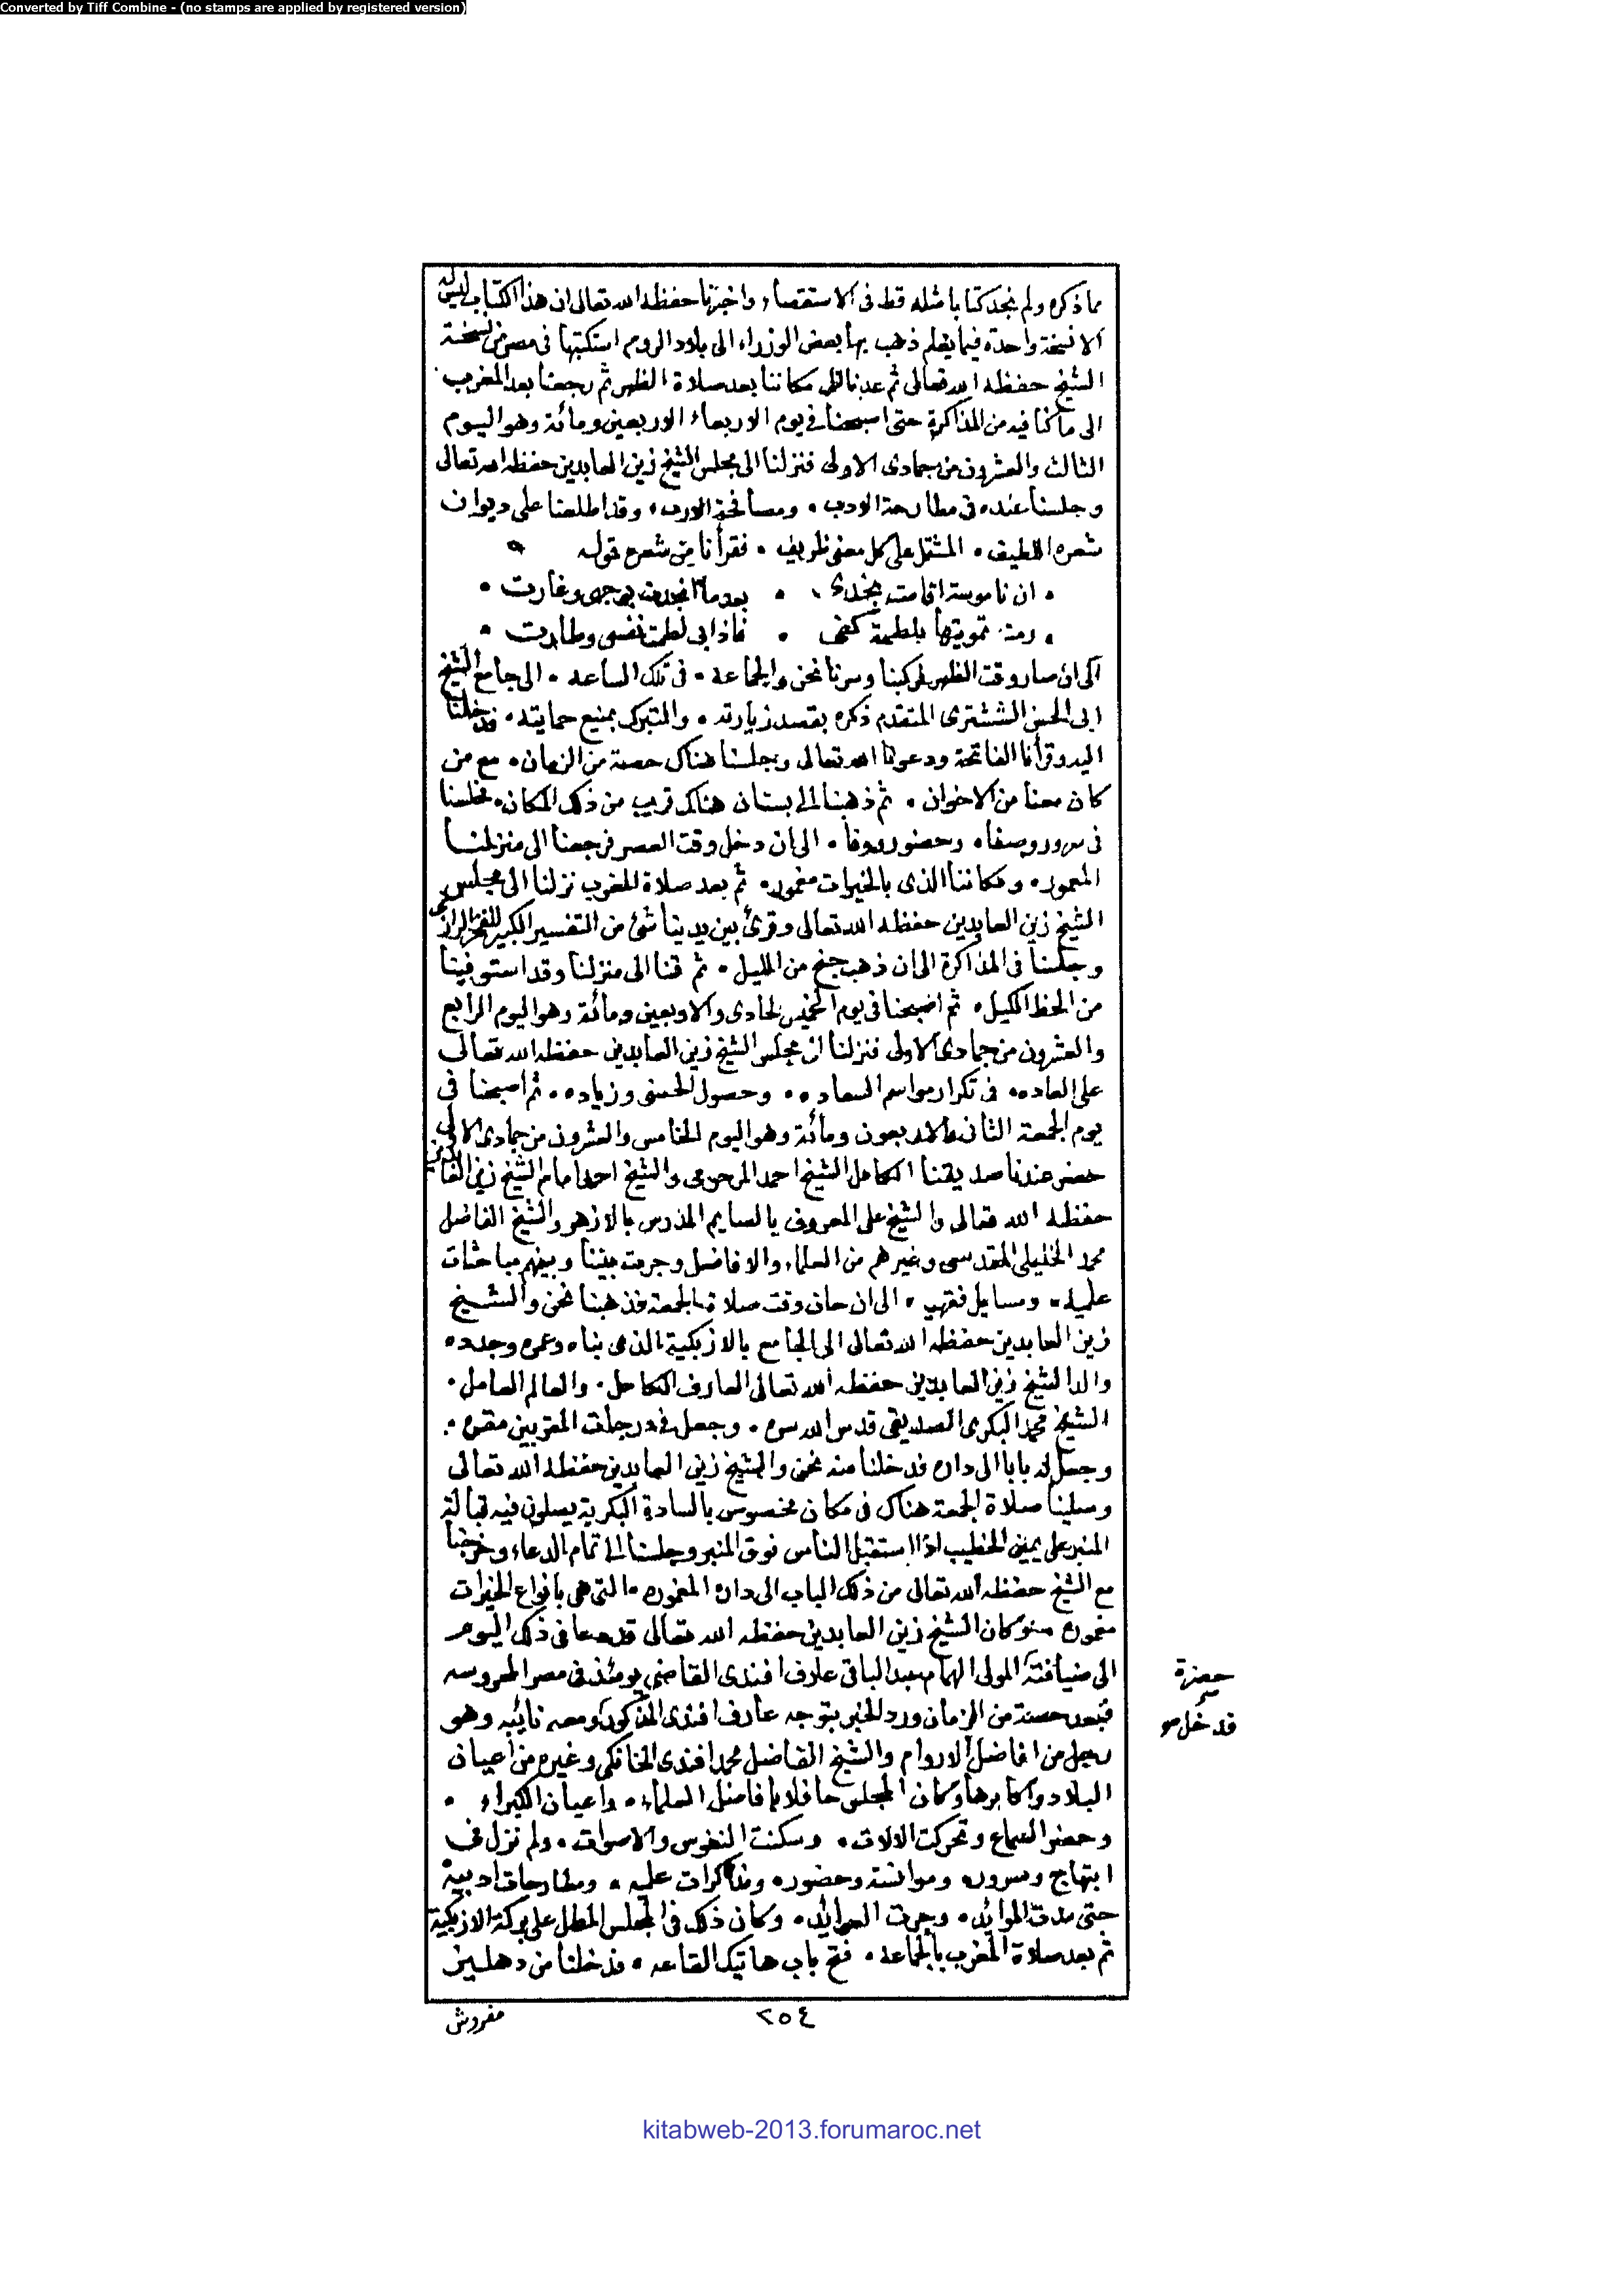 Converted by Tiff Combine - (no stamps are applied by registered version)
مما ذكره ولم نجد كتابا مثله قط فى الاستقصاء واخبرنا حفظه الله تعالى ان هذا الكتاب ليس له
الا نسخة واحدة فيما يعلم ذهب بها بعض الوزراء الى بلاد الروم استكتبها فى مصر من نسخة
الشيخ حفظه الله تعالى ثم عدنا الى مكاننا بعد صلاة الظهر ثم رجعنا بعد المغرب
الى ما كنا فيه من المذاكرة حتى اصبحنا فى يوم الاربعاء الاربعين ومائة وهو اليوم
الثالث والعشرون من جمادى الاولى فنزلنا الى مجلس الشيخ زين العابدين حفظه الله تعالى
وجلسنا عنده فى مطارحة الادب ، ومصافحة الارب ، وقد اطلعنا على ديوان
شعره اللطيف ، المشتمل على كل معنى ظريف ، فقرأنا من شعره قوله
ان ناموسة اقامت بخدى ، بعدما انجدت بوجهى وغارت ،
رمت تمويتها بلطمة كفى ، فاذا بى لطمت نفسى وطارت ،
الى ان صار وقت الظهر فركبنا وسرنا نحن والجماعه ، فى تلك الساعه ، الى جامع الشيخ
ابى الحسن الششترى المتقدم ذكره بقصد زيارته ، والتبرك بمنيع حمايته ، فدخلنا
اليه وقرأنا الفاتحة ودعونا الله تعالى وجلسنا هناك حصة من الزمان ، مع من
كان معنا من الاخوان ، ثم ذهبنا الى بستان هناك قريب من ذلك المكان ، فجلسنا
فى سرور وصفا ، وحضور ووفا ، الى ان دخل وقت العصر فرجعنا الى منزلنا
المعمور ، ومكاننا الذى بالخيرات مغمور ، ثم بعد صلاة المغرب نزلنا الى مجلس
الشيخ زين العابدين حفظه الله تعالى وقرئ بين يدينا شئ من التفسير الكبير للفخر الرازى
وجلسنا فى المذاكرة الى ان ذهب جنح من الليل ، ثم قمنا الى منزلنا وقد استوفينا
من الحظ الكيل ، ثم اصبحنا فى يوم الخميس الحادى والاربعين ومائة وهو اليوم الرابع
والعشرون من جمادى الاولى فنزلنا الى مجلس الشيخ زين العابدين حفظه الله تعالى
على العاده ، فى تكرار مواسم السعاده ، وحصول الحسنى وزياده ، ثم اصبحنا فى
يوم الجمعة الثانى والاربعون ومائة وهو اليوم الخامس والعشرون من جمادى الاولى
حضر عندنا صديقنا الكامل الشيخ احمد المرحومى والشيخ احمد امام الشيخ زين العابدين
حفظه الله تعالى والشيخ على المعروف بالصايم المدرس بالازهر والشيخ الفاضل
محمد الخليلى المقدسى وغيرهم من العلماء والافاضل وجرت بيننا وبينهم مباحثات
علميه ، ومسايل فقهيه ، الى ان حان وقت صلاة الجمعة فذهبنا نحن والشيخ
زين العابدين حفظه الله تعالى الى الجامع بالازبكية الذى بناه وعمره وجدده
والد الشيخ زين العابدين حفظه الله تعالى العارف الكامل ، والعالم العامل ،
الشيخ محمد البكرى الصديقى قدس الله سره ، وجعل فى درجات المقربين مقره ،
وجعل له بابا الى داره فدخلنا منه نحن والشيخ زين العابدين حفظه الله تعالى
وصلينا صلاة الجمعة هناك فى مكان مخصوص بالسادة البكرية يصلون فيه قبالة
المنبر على يمين الخطيب اذا استقبل الناس فوق المنبر وجلسنا الى تمام الدعاء وخرجنا
مع الشيخ حفظه الله تعالى من ذلك الباب الى داره المعموره ، التى هى بانواع الخيرات
مغموره ، وكان الشيخ زين العابدين حفظه الله تعالى قد دعا فى ذلك اليوم
الى ضيافته المولى الهمام عبد الباقى عارف افندى القاضى يومئذ فى مصر المحروسه
فبعد حصة من الزمان ورد الخبر بتوجه عارف افندى المذكور ومعه نائبه وهو
رجل من افاضل الاروام والشيخ الفاضل محمد افندى الخانكى وغيره من اعيان
البلاد واكابرها وكان المجلس حافلا بافاضل العلماء ، واعيان الكبراء ،
وحضر السماع وتحركت الالات ، وسكنت النفوس والاصوات ، ولم نزل فى
ابتهاج وسرور ، وموانسة وحضور ، ومذاكرات علميه ، ومطارحات ادبية
حتى مدت الموائد ، وجرت العوائد ، وكان ذلك فى المجلس المطل على بركة الازبكية
ثم بعد صلاة المغرب بالجماعه ، فتح باب هاتيك القاعه ، فدخلنا من دهليز
حضرة
قد خل
مفروش
٢٥٤
kitabweb-2013.forumaroc.net